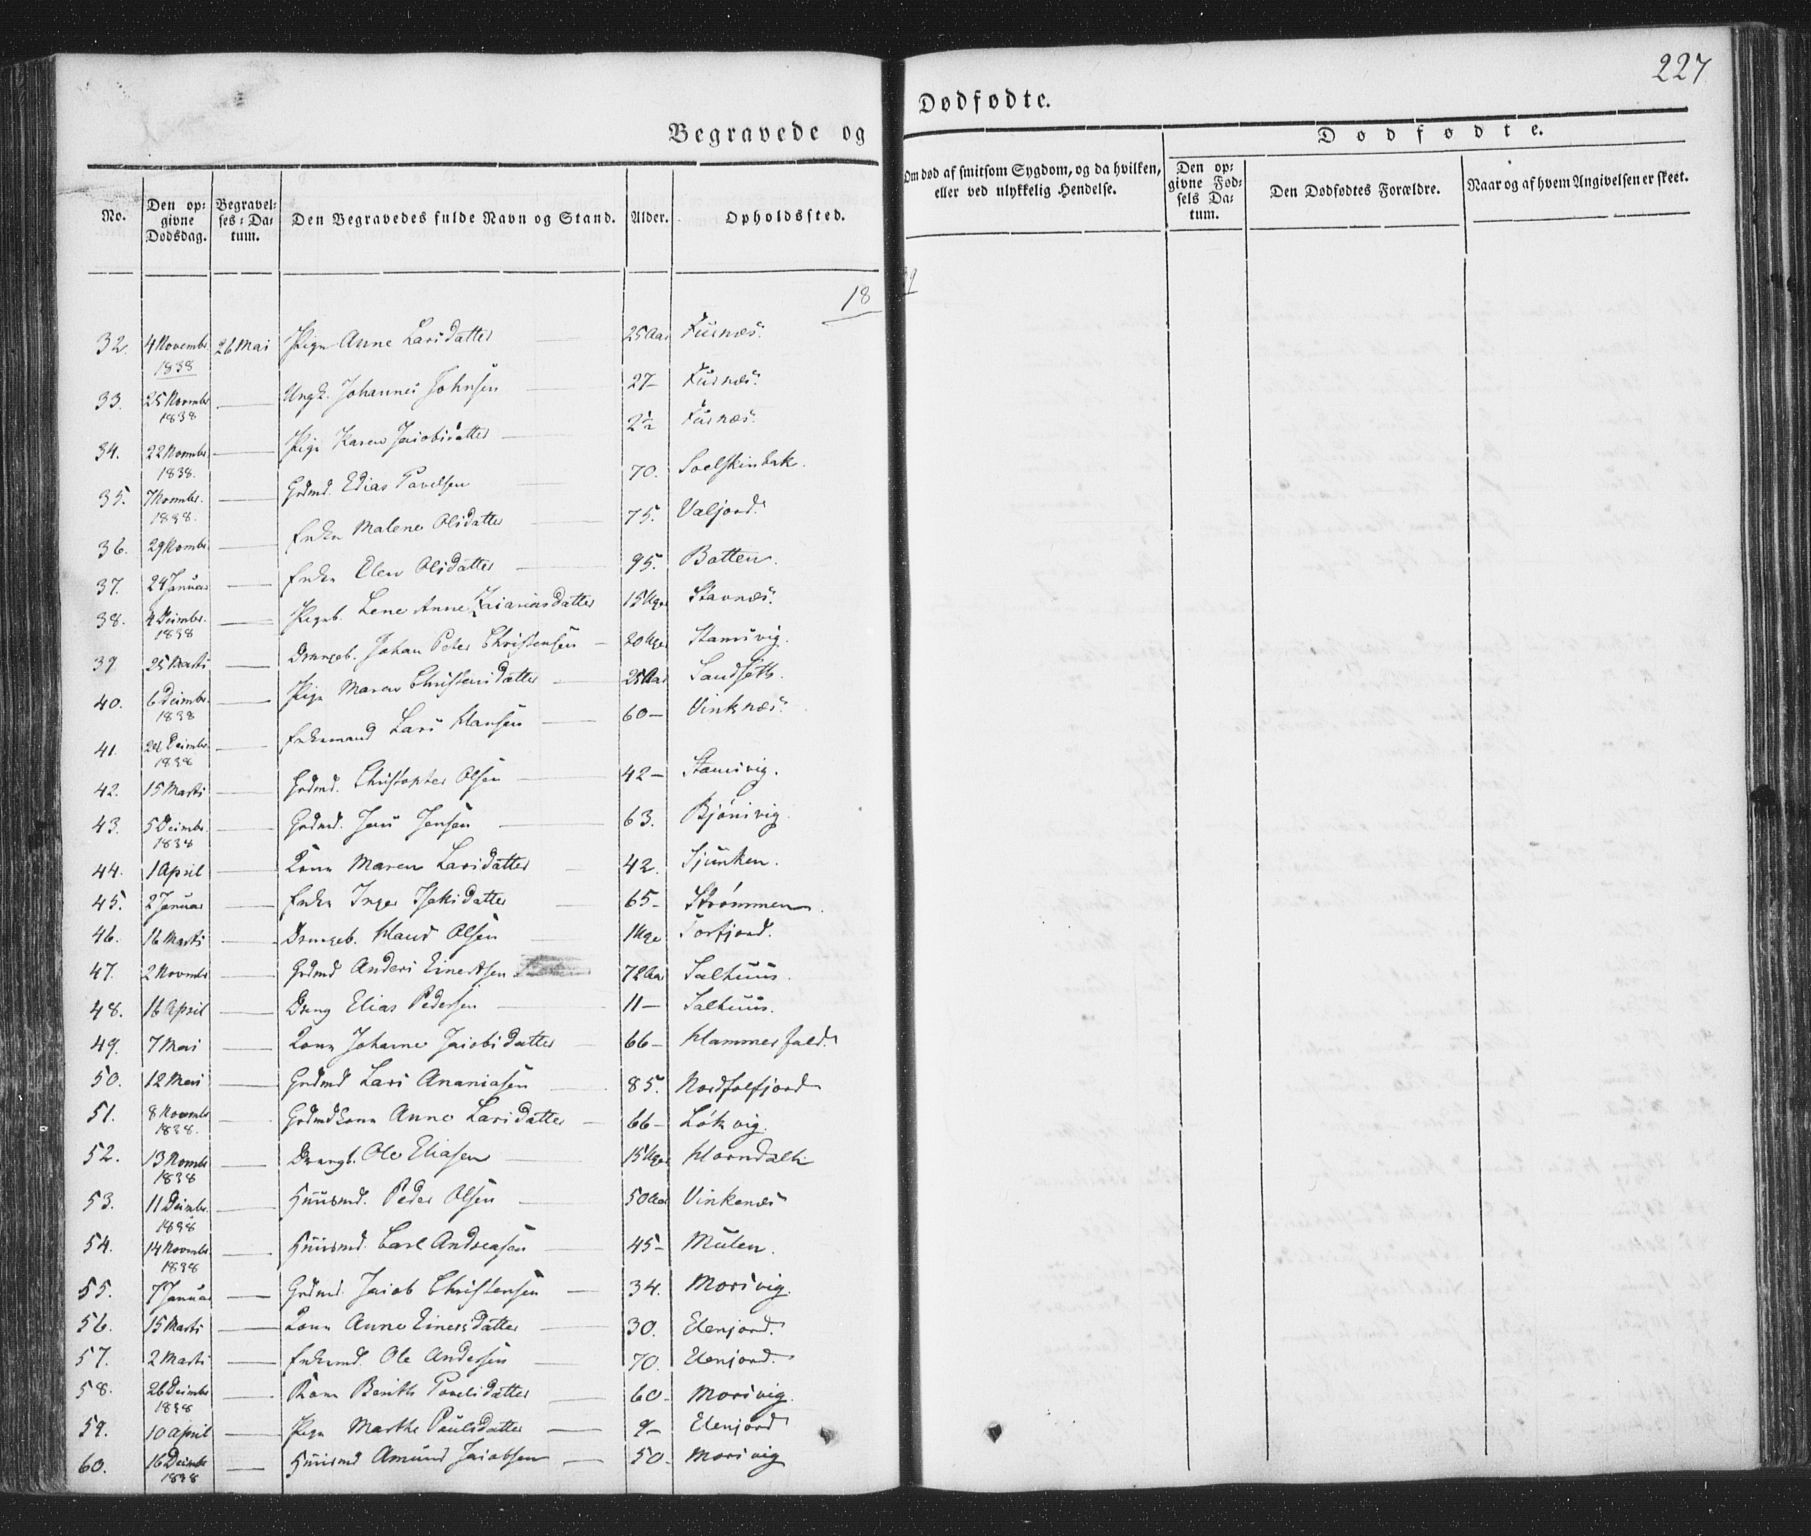 227
Begravede og Dødfødte.
No.
Den opgivne Dødsdag.
Begravelses-Datum.
Den Begravedes fulde Navn og Stand.
Alder.
Opholdssted.
Om død af smitsom Sygdom, og da hvilken, eller ved ulykkelig Hendelse.
Dødfødte.
Den opgivne Fødsels Datum.
Den Dødfødtes Forældre.
Naar og af hvem Angivelsen er skeet.
18
32. 4 Novembr 1838 26 Mai Pige Anne Larsdatter 25 Aar Furnæs.
33. 25 Novmbr 1838 Ungk. Johannes Johnsen 27- Furnæs.
34. 22 Novmbr 1838. Pige Karen Jacobsdatter 2½ Furnæs.
35. 7 Novmbr. 1838. Grdmd. Edias Povelsen 70. Soelskinbak.
36. 29 Novmbr Enke Malene Olsdatter 75. Valjord.
37. 24 Januar Enke Elen Olsdatter 95. Botten.
38. 4 Decmbr. 1838 Pigeb. Lene Anne Zacariasdatter 15 Uger Stavnæs.
39 25 Marts Drengeb. Johan Peter Christensen 20 Uger Stamsvig.
40. 6 Decmbr 1838 Pige Maren Christensdatter 25 Aar Sandseth.
41. Decmbr. 1838 Enkemand Lars Hansen 60- Vinknæs.
42. 15 Marts Grdmd. Christopher Olsen 42- Stamsvig.
43. 5 Decmbr. 1838 Grdmd. Jens Jensen 63. Bjørnsvig
44. 1 April Kone Maren Larsdatter 42. Sjunken.
45. 2 Januar Enke Inger Isaksdatter 65- Strømmen.
46. 16 Marts Drengeb. Olsen 1 Uge Torfjord.
47. 2 Novmbr Grdmd Anders Einertsen 72 Aar Salhuus.
48. 16 April Dreng Elias Pedersen 11- Salhuus.
49. 7 Mai Kone Johanne Jacobsdatter 66- Hammerfald.
50. 12 Mai Grdmd Lars Ananiasen 85. Nordfolfjord
51. 8 Novmbr 1838. Grdmdkone Anne Larsdatter 66- Løkvig.
52. 13 Novmbr 1838 Drengb. Ole Eliasen 15 Uger Horndalh
53. 11 Decmbr. 1838 Huusmd. Peder Olsen 50 Aar Vinkenæs
54. 14 Novmbr 1838 Huusmd. Carl Andreasen 45- Mulen.
55. 7 Januar Grdmd. Jacob Christensen 34. Morsvig.
56. 15 Marts Kone Anne Einersdatter 30. Elenjord.
57. 2 Marts Enkemd. Ole Andersen 70. Elenjord.
58. 26 Decmbr 1838 Kone Berith Povelsdatter 60. Morsvig.
59. 10 April Pige Marthe Paulsdatter 9- Elenjord
60. 16 Decmbr 1838 Huusmd Amund Jacobsen 50. Morsvig